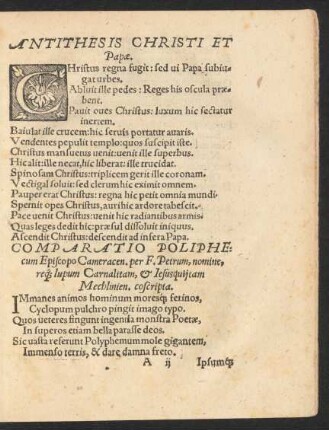 ANTITHESIS CHRISTI ET
Papæ.
CHristus regna fugit: sed ui Papa subiu-
gat urbes.
Abluit ille pedes: Reges his oscula præ-
bent.
Pauit oues Christus: luxum hic sectatur
inertem.
Baiulat ille crucem: hic seruis portatur auaris.
Vendentes pepulit templo: quos suscipit iste.
Christus mansuetus uenit: uenit ille superbus.
Hic alit: ille necat, hic liberat: ille trucidat.
Spinosam Christus: triplicem gerit ille coronam.
Vectigal soluit: sed clerum hic eximit omnem.
Pauper erat Christus: regna hic petit omnia mundi.
Spernit opes Christus, auri hic ardore tabescit.
Pace uenit Christus: uenit hic radiantibus armis.
Quas leges dedit hic: præsul dissoluit iniquus.
Ascendit Christus: descendit ad infera Papa.
COMPARATIO POLIPHE-
cum Episcopo Cameracen. per F. Petrum, nomine,
req́; lupum Carnalitam, & Iesusquitam
Mechlinien. coscripta.
IMmanes animos hominum moresq́; fetinos,
Cyclopum pulchro pingit imago typo.
Quos ueteres fingunt ingenia monstra Poetæ,
In superos etiam bella parasse deos.
Sic uasta referunt Polyphemum mole gigantem,
Immenso terris, & dare damna freto.
A ij Ipsumq́;